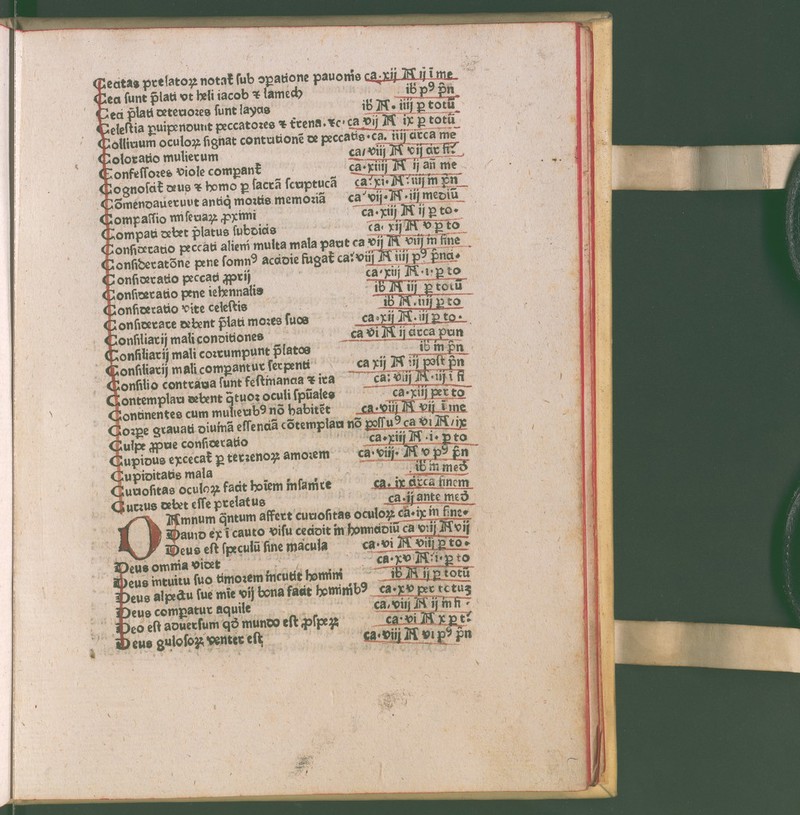 Cecitas prelatoꝝ notat̄ sub ↄparatione pauonis ca·xij N ij ī me
Ceci sunt p̄lati vt heli iacob ⁊ lamech ib̄ pꝰ p̄n
Ceci p̄lati deteriores sunt layas ib̄ N· iiij ꝑ totū
Celestia ꝑuipendunt peccatores ⁊ t̄rena·⁊c· ca vij N ix ꝑ totū
Collirium oculoꝝ signat contritionē de peccatis· ca. iiij circa me
Coloratio mulierum ca·viij N vij
Confessores viole compant̄ ca·xiiij N ij an̄ me
Cognoscit̄ deus ⁊ homo ꝑ sacrā scripturā ca·xi·N·iiij in p̄n
Cōmendauerunt antiq̇ mortis memoriā ca·vij·N·iij mediū
Compassio miseriaꝝ ꝓximi ca·xiij N ij ꝑ to·
Compati debet p̄latus subditis ca· xij N v ꝑ to
Consideratio peccati alieni multa mala parit ca vij N viij in fine
Consideratōne pene somnꝰ acidie fugat̄ ca·viij N iiij pꝰ p̄ncī·
Consideratio peccati ꝓprij ca·xij N·i·ꝑ to
Consideratio pene iehennalis ib̄ N iij ꝑ totū
Consideratio vite celestis ib̄ N·iiij ꝑ to
Considerare debent p̄lati mores suos ca·xij N·iij ꝑ to·
Consiliarij mali conditiones ca vi N ij circa prin
Consiliarij mali corrumpunt p̄latos ib̄ in p̄n
Consiliarij mali compantur serpenti ca xij N iij post p̄n
Consilio contraria sunt festinancia ⁊ ira ca·viij N·iij ī fi
Contemplari debent q̄tuor oculi sp̄uales ca·xiij per to
Continentes cum mulieribꝰ nō habitēt ca·viij N vij ī me
Corpe grauati diuinā essenciā cōtemplari nō possūꝰ ca vi N ix
Culpe ꝓprie consideratio ca·xiij N·i·ꝑ to
Cupidus excecat̄ ꝑ terrenoꝝ amorem ca·viij·N v pꝰ p̄n
Cupiditatis mala ib̄ in med̄
Curiositas oculoꝝ facit hoīem insanire ca. ix circa finem
Currus debet esse prelatus ca·ij ante med̄
DAmnum q̄ntum affert curiositas oculoꝝ ca·ix in fine·
Dauid ex ī cauto visu cecidit in homicidiū ca viij N vij
Deus est speculū sine macula ca·vi N viij ꝑ to·
Deus omnia videt ca·xv N·i·ꝑ to
Deus intuitu suo timorem incutit homini ib̄ N ij ꝑ totū
Deus aspectu sue mīe vij bona facit hominibꝰ ca·xv per totuꝫ
Deus compatur aquile ca·viij N ij in fi·
Deo est aduersum qd̄ mundo est ꝓspeꝝ ca·vi N x ꝑ t·
Deus gulosoꝝ venter est ca·viij N vi pꝰ p̄n